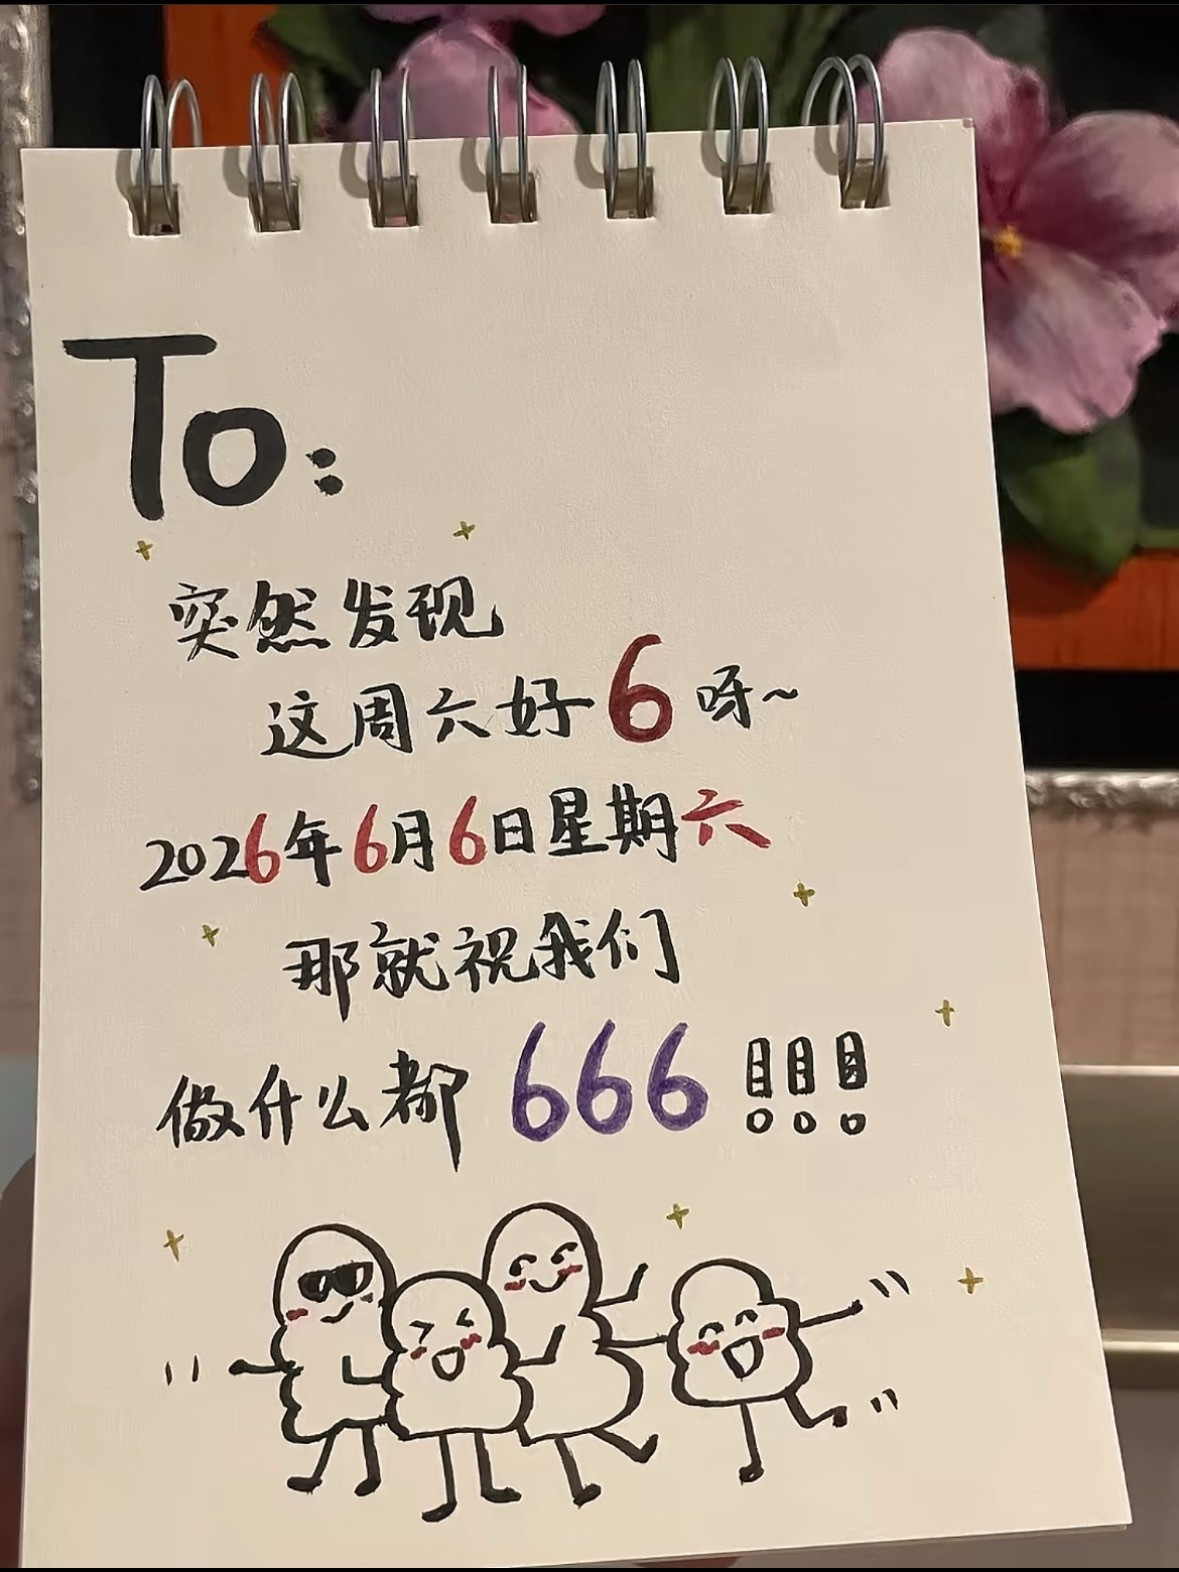 To:
突然发现
这周六好6呀~
2026年6月6日星期六
那就祝我们
做什么都666!!!